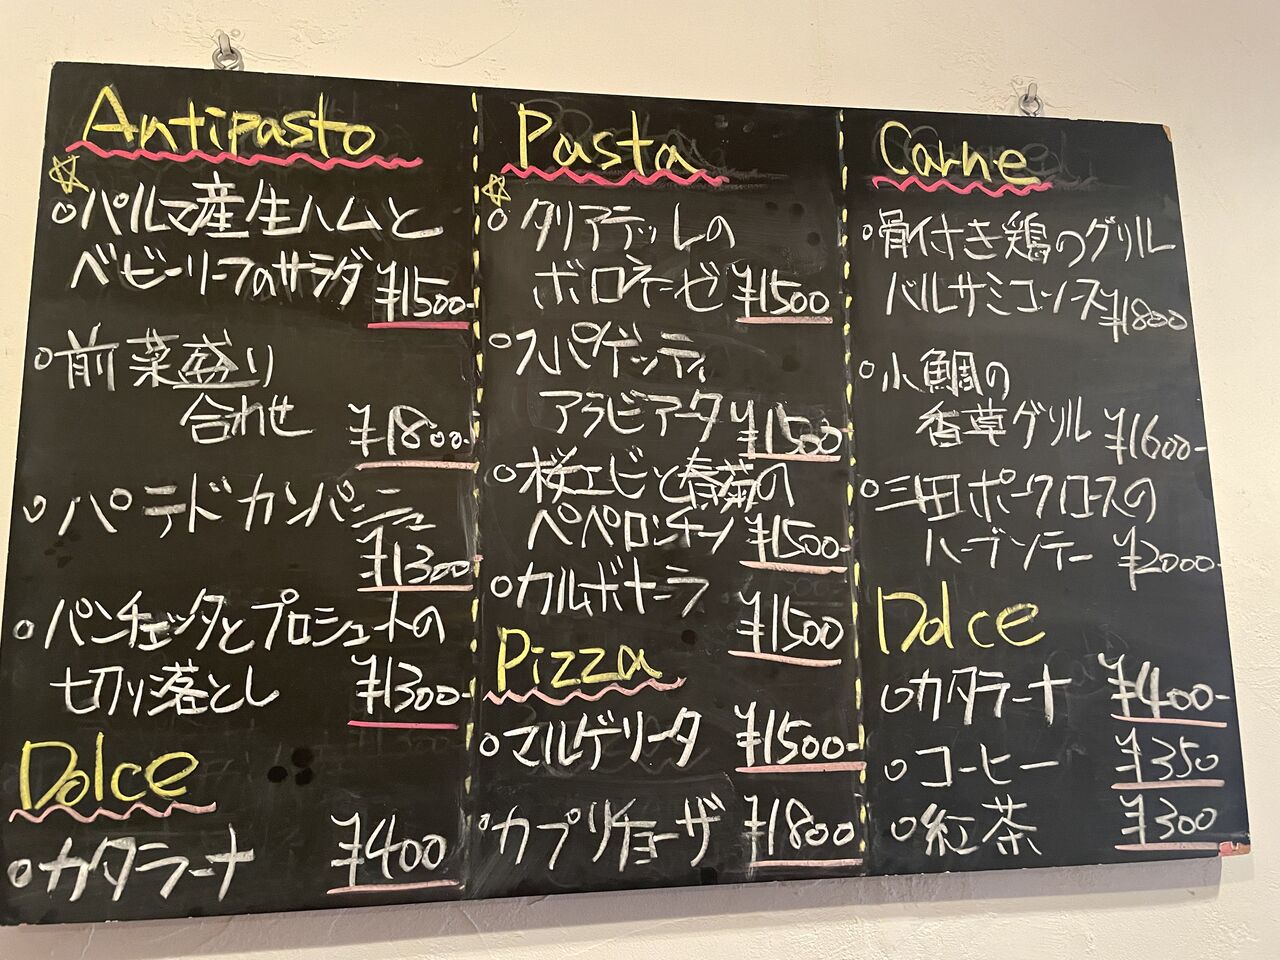 Antipasto
パルマ産生ハムと
ベビーリーフのサラダ ¥1500-
前菜盛り
合わせ ¥1800-
パテドカンパーニュ
¥1300
パンチェッタとプロシュートの
切り落とし ¥1300-
Dolce
カタラーナ ¥400
Pasta
タリアテッレの
ボロネーゼ ¥1500
スパゲッティ
アラビアータ ¥1500
桜エビと春菊の
ペペロンチーノ ¥1500-
カルボナーラ
¥1500
Pizza
マルゲリータ ¥1500-
カプリチョーザ ¥1800
Carne
骨付き鶏のグリル
バルサミコソース ¥1800
小鯛の
香草グリル ¥1600-
三田ポークロースの
ハーブソテー ¥2000-
Dolce
カタラーナ ¥400-
コーヒー ¥350
紅茶 ¥300